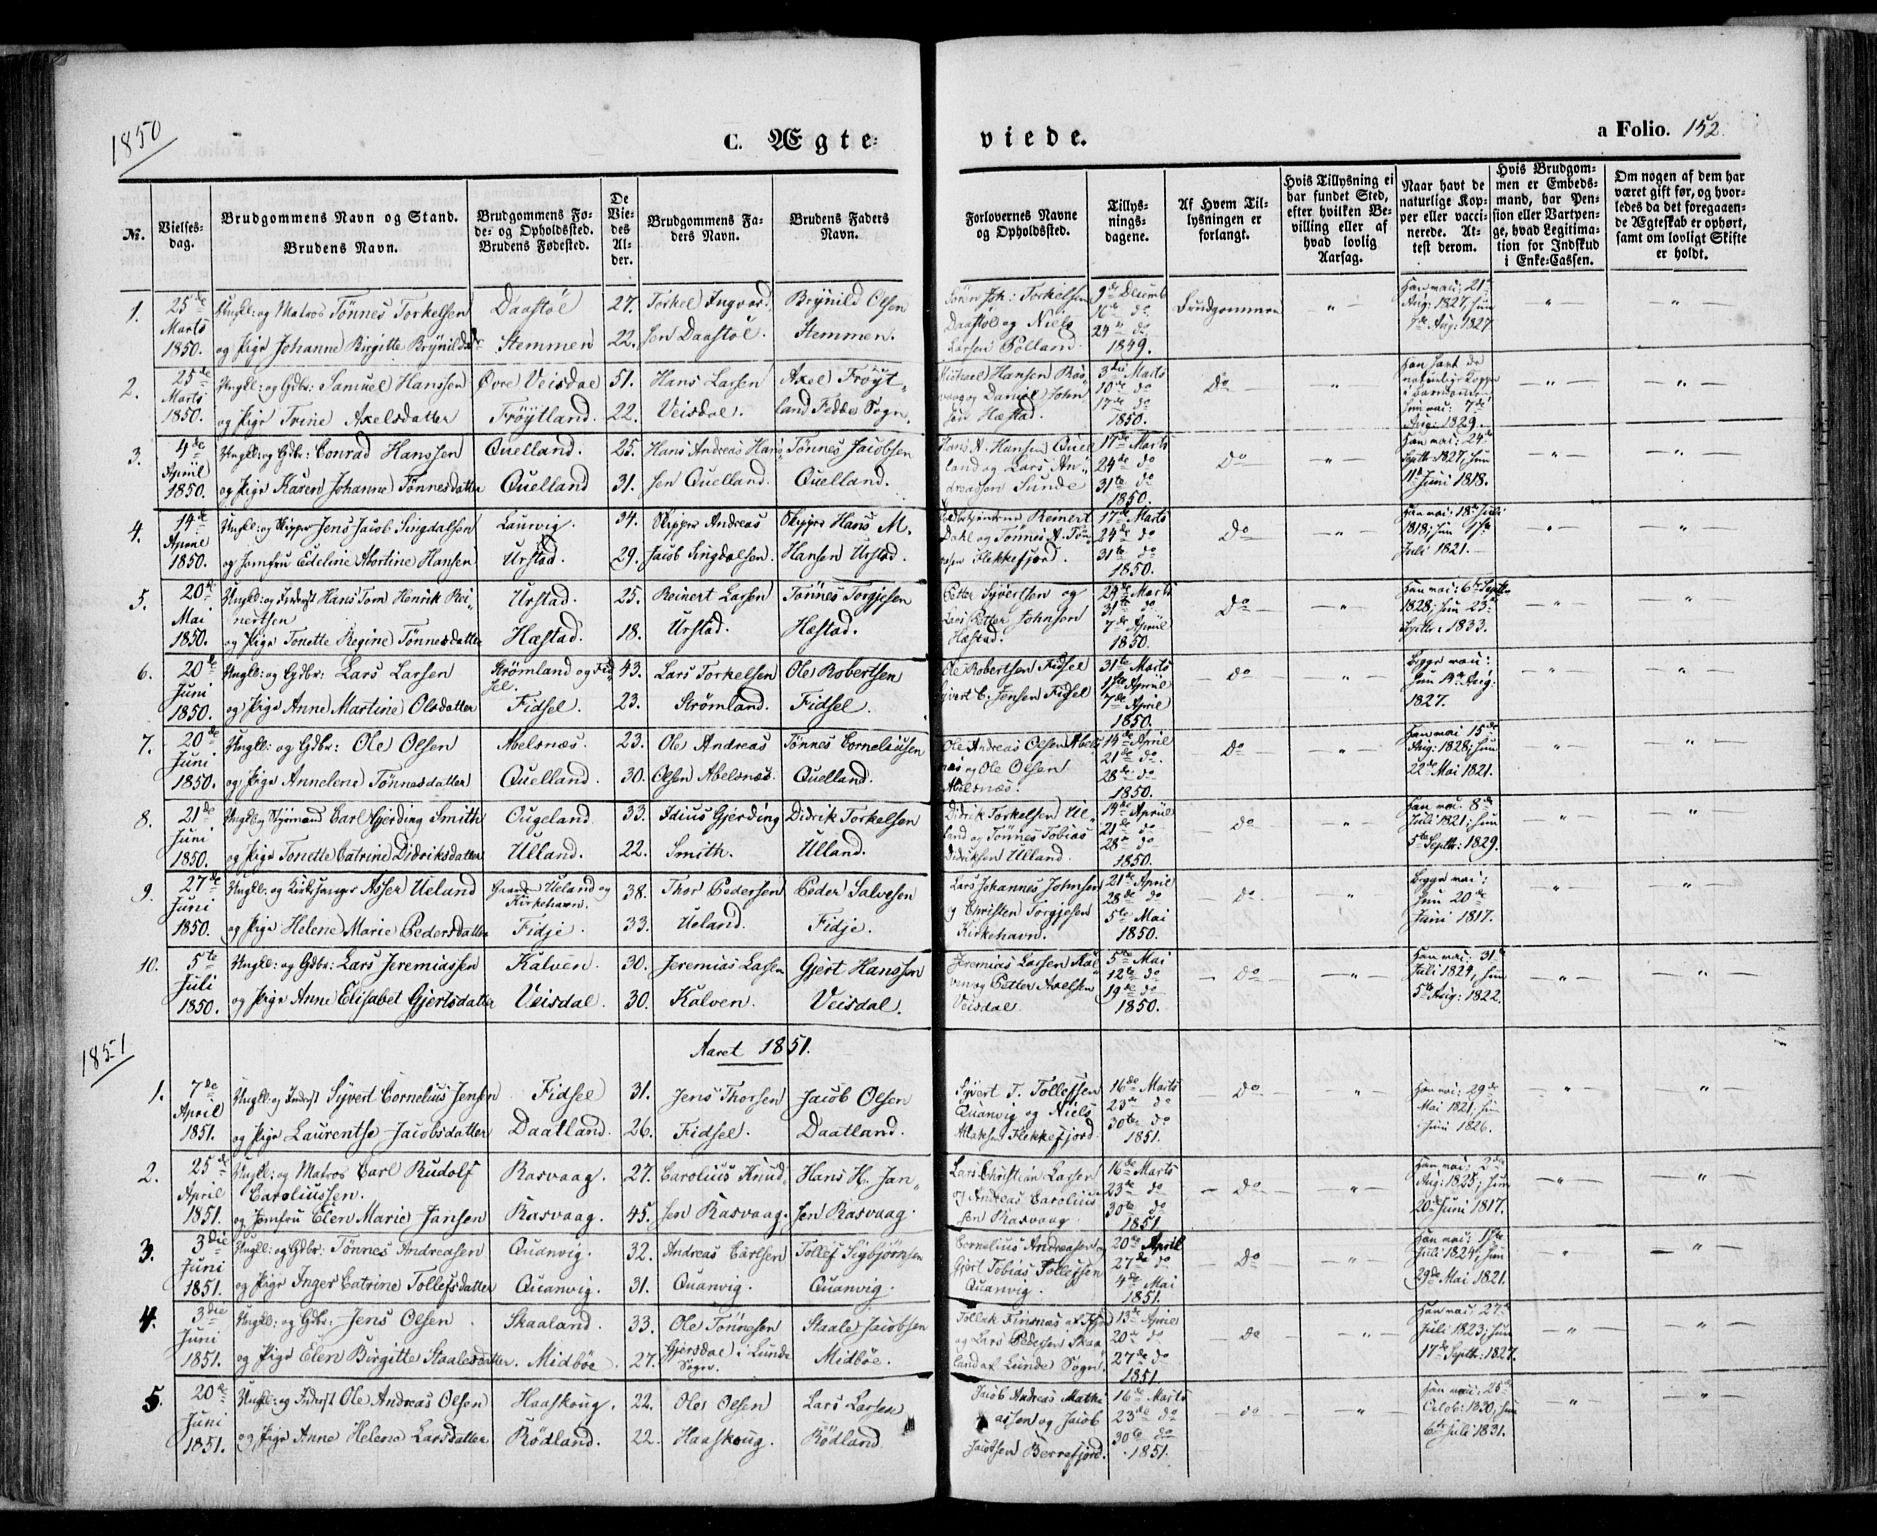 1850
C. Ægte-
viede.
a Folio. 152.
No.
Vielses-
dag.
Brudgommens Navn og Stand.
Brudens Navn.
Brudgommens Fø-
de- og Opholdssted.
Brudens Fødested.
De
Vie-
des
Al-
der.
Brudgommens Fa-
ders Navn.
Brudens Faders
Navn.
Forlovernes Navne
og Opholdssted.
Tillys-
nings-
dagene.
Af Hvem Til-
lysningen er
forlangt.
Hvis Tillysning ei
har fundet Sted,
efter hvilken Be-
villing eller af
hvad lovlig
Aarsag.
Naar havt de
naturlige Kop-
per eller vacci-
nerede. At-
test derom.
Hvis Brudgom-
men er Embeds-
mand, har Pen-
sion eller Vartpen-
ge, hvad Legitima-
tion for Indskud
i Enke-Cassen.
Om nogen af dem har
været gift før, og hvor-
ledes da det foregaaen-
de Ægteskab er ophørt,
samt om lovligt Skifte
er holdt.
1. 25de Marts 1850. Ungkl: og Matros Tönnes Torkelsen Daastöl 27. Torkel Ingvard- Brynild Olsen
og Pige Johanne Birgitte Brynildsd. Stemmen 22. sen Daastöl. Stemmen.
Joh: Torkelsen Daastöl og Niels Larsen 9de Decemb 16de do 24de do 1849. Brudgommen Han vac: 21 Aug: 1827, hun 7de Aug: 1827
2. 25de Marts 1850. Ungkl: og Gdbr: Samuel Hanssen Övre Veisdal 51. Hans Larsen Axel Fröyt-
og Pige Trine Axelsdatter Fröytland. 22. Veisdal. land Fedde Sogn.
Michael Hansen Ras- vaag og Daniel John- sen Hæstad. 3die Marts 10de do 17de do 1850. Do Han havt de naturlige Kopper i Barndommen hun vac: 7de Aug: 1829.
3. 4de April 1850. Ungkl: og Gdbr: Conrad Hanssen Quelland. 25. Hans Andreas Hans- Tönnes Jacobsen
og Pige Karen Johanne Tönnesdatter Quelland 31. sen Quelland. Quelland.
Hans A. Hansen Quel- land og Lars An- dreassen Sunde 17de Marts 24de do 31te do 1850. Do Han vac: 24de Septb: 1827, hun 11te Juni 1818.
4. 14de April 1850. Ungkl: og Skipper Jens Jacob Singdalsen Laurvig. 34. Skipper Andreas Skipper Hans M.
og Jomfru Edeline Martine Hansen Urstad. 29. Jacob Singdalsen. Hansen Urstad.
Reinert Dahl og Tönnes A. Tön- nesen Flekkefjord. 17de Marts 24de do 31te do 1850. Do Han vac: 18de Juli 1818; hun 1ste Juli 1821.
5. 20de Mai 1850. Ungkl: og Inderst Hans Tom Henrik Rei- nertsen Urstad. 25. Reinert Larsen Tönnes Torgjesen
og Pige Tonette Regine Tönnesdatter Hæstad. 18. Urstad. Hæstad.
Petter Syvertsen og Lars Petter Johnsen Hæstad. 24de Marts 31te do 7de April 1850. Do Han vac: 6te Septb: 1828; hun 23de Septb: 1833.
6. 20de Juni 1850. Ungkl: og Gdbr: Lars Larsen Strömland og Fid- sel. 43. Lars Torkelsen Ole Robertsen
og Pige Anne Martine Olsdatter Fidsel. 23. Strömland. Fidsel.
Ole Robertsen Fidsel Syvert C. Jensen Fidsel 31te Marts 1ste April 7de April 1850. do Begge vac: hun 14de Aug: 1827.
7. 20de Juni 1850. Ungkl: og Gdbr: Ole Olsen Abelsnæs. 23. Ole Andreas Tönnes Corneliusen
og Pige Annelene Tönnesdatter Quelland. 30. Olsen Abelsnæs. Quelland.
Ole Andreas Olsen Abels- næs og Ole Olsen Abelsnæs. 14de April 21de do 28de do 1850. Do Han vac: 15de Aug: 1828; hun 22de Mai 1821.
8. 21de Juni 1850. Ungkl: og Styrmand Carl Gjerding Smith Ougeland. 33. Idius Gjerding Didrik Torkelsen
og Pige Tonette Catrine Didriksdatter Ulland. 22. Smith. Ulland.
Didrik Torkelsen Ul- land og Tönnes Tobias Didriksen Ulland. 14de April 21de do 28de do 1850. do Han vac: 8de Juli 1821; hun 5te Septb: 1829.
9. 27de Juni 1850. Ungkl: og Kirksanger Asser Ueland Ueland og Kirkehavn. 38. Thor Pedersen Peder Salvesen
og Pige Helene Marie Pedersdatter Fidje. 33. Ueland. Fidje.
Lars Johannes Johnsen og Christen Torgjesen Kirkehavn. 21de April 28de do 5te Mai 1850. do Begge vac: hun 20de Juni 1817.
10. 5te Juli 1850. Ungkl: og Gdbr: Lars Jeremiassen Kalven. 30. Jeremias Larsen Gjert Hanssen
og Pige Anne Elisabet Gjertsdatter Veisdal. 30. Kalven. Veisdal.
Jeremias Larsen Kal- ven og Petter Axelsen Veisdal. 5te Mai 12te do 19de do 1850. Do Han vac: 31te Juli 1824, hun 5te Aug: 1822.
1851
Aaret 1851.
1. 7de April 1851. Ungkl: og Inderst Syvert Cornelius Jensen Fidsel 31. Jens Thorsen Jacob Olsen
og Pige Laurentse Jacobsdatter Daatland. 26. Fidsel. Daatland.
Syvert T. Tollefsen Quanvig og Niels Aslaksen Flekkefjord. 16de Marts 23de do 30te do 1851. Do Han vac: 29de Mai 1821, hun Juni 1826.
2. 25de April 1851. Ungkl: og Matros Carl Rudolf Caroliussen. Rasvaag. 27. Carolius Knud- Hans H. Jan-
og Jomfru Elen Marie Jansen Rasvaag. 45. sen Rasvaag. sen Rasvaag.
Lars Christian Larsen og Andreas Carolius- sen Rasvaag. 16de Marts 23de do 30te do 1851. Do Han vac: 3de Aug: 1825; hun 20de Juni 1817.
3. 3die Juni 1851. Ungkl: og Gdbr: Tönnes Andreasen Quanvig. 32. Andreas Carlsen Tollef Sigbjörnsen
og Pige Inger Catrine Tollefsdatter Quanvig. 31. Quanvig. Quanvig.
Cornelius Andreasen og Gjert Tobias Tollefsen Quanvig. 20de April 27de do 4de Mai 1851. Do Han vac: 1ste Juli 1824, hun 29de Mai 1821.
4. 3die Juni 1851. Ungkl: og Gdbr: Jens Olsen Skaaland. 33. Ole Tönnesen Staale Jacobsen
og Pige Elen Birgitte Staalesdatter. Midböe. 27. Gjersdal i Lunde Sogn. Midböe.
Tollak Finsnæs og Lars Pedersen Skaa- land af Lunde Sogn. 13de April 20de do 27de do 1851. Do Han vac: 27de Juli 1823; hun 17de Septb: 1827.
5. 20de Juni 1851. Ungkl: og Inderst Ole Andreas Olsen Haaskoug. 22. Ole Olsen Lars Larsen
og Pige Anne Helene Larsdatter Rödland. 22. Haaskoug. Rödland
Jacob Andreas Mathi- assen og Jacob Jacobsen Berrefjord. 16de Marts 23de do 30te do 1851. do Han vac: 25de Octob: 1830, hun 6te Juli 1831.